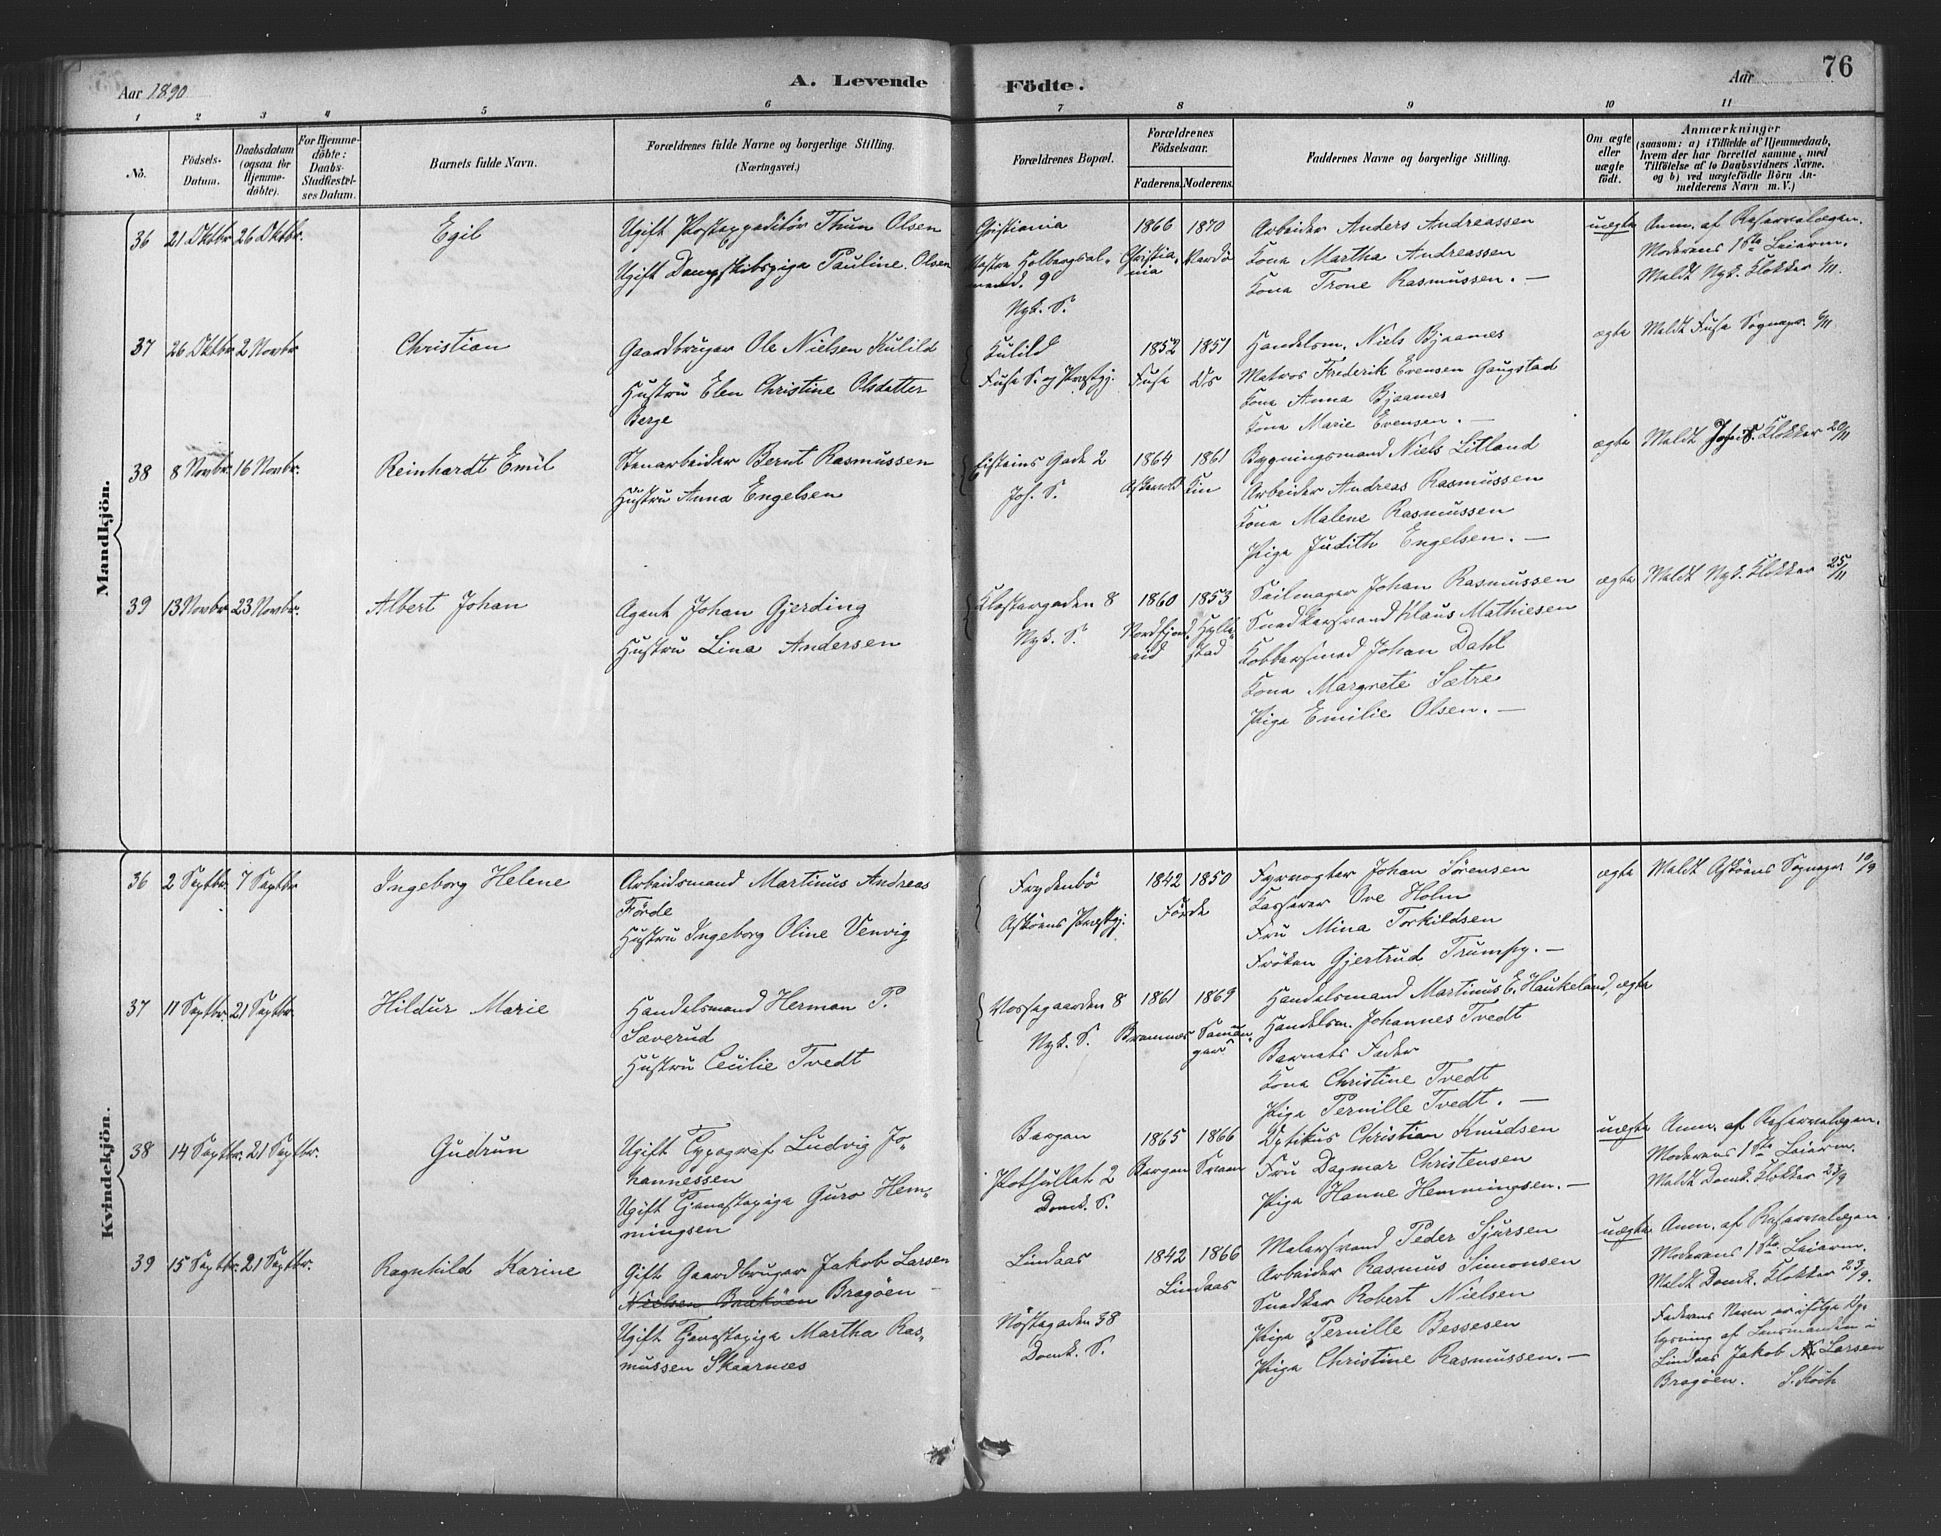 Aar 1890
A. Levende
Födte.
Aar
76
1 2 3 4 5 6 7 8 9 10 11
No.
Födsels-
Datum.
Daabsdatum
(ogsaa for
Hjemme-
döbte).
For Hjemme-
döbte:
Daabs-
Stadfæstel-
ses Datum.
Barnets fulde Navn.
Forældrenes fulde Navne og borgerlige Stilling.
(Næringsvei.)
Forældrenes Bopæl.
Forældrenes
Födselsaar.
Faderens. Moderens.
Faddernes Navne og borgerlige Stilling.
Om ægte
eller
uægte
födt.
Anmærkninger
(saasom: a) i Tilfælde af Hjemmedaab,
hvem der har forrettet samme, med
Tilföielse af to Daabsvidners Navne,
og b) ved uægtefödte Börn An-
melderens Navn m. V.)
Mandkjön.
36 21 Oktbr. 26 Oktbr.
Egil
Ugift Postexpeditör Thun Olsen
Ugift Dampskibspige Pauline Olsen
Cristiania
Holbergsal-
mend. 9
Nyk. S.
1866 1870
Christia-
nia
Vardö
Arbeider Anders Andreassen
Kona Martha Andreassen
Kona Trone Rasmussen. —
uægte
Anm. af Reservelægen.
Moderens 1ste Leierm.
Meldt Nyk. Klokker 1/11.
37 26 Oktbr. 2 Novbr.
Christian
Gaardbruger Ole Nielsen Kulild
Hustru Elen Christine Olsdatter
Berge
Kulild
Fusa S. og Præstgj.
1852 1851
Fusa Ds
Handelsm. Niels Bjaanes
Matros Frederik Evensen Gaugstad
Kona Anna Bjaanes
Kona Marie Evensen. —
ægte
Meldt Fusa Sognepr. 6/11
38 8 Novbr. 16 Novbr.
Reinhardt Emil
Stenarbeider Bernt Rasmussen
Hustru Anna Engelsen
Eisteins Gade 2
Joh. S.
1864 1861
Askevold Kin
Bygningsmand Niels Litland
Arbeider Andreas Rasmussen
Kona Malene Rasmussen
Pige Judith Engelsen. —
ægte
Meldt Joh. S. Klokker 20/11
39 13 Novbr. 23 Novbr.
Albert Johan
Agent Johan Gjerding
Hustru Lina Andersen
Klostergaden 8
Nyk. S.
1860 1853
Nordfjord-
eid
Hylle-
stad
Seilmager Johan Rasmussen
Snedkersvend Klaus Mathiesen
Kobbersmed Johan Dahl
Kona Margrete Sætre
Pige Emilie Olsen. —
ægte
Meldt Nyk. Klokker 25/11
Kvindekjön.
36 2 Septbr. 7 Septbr
Ingeborg Helene
Arbeidsmand Martinus Andreas
Förde
Hustru Ingeborg Oline Venvig
Frydenbö
Asköens Præstgj.
1842 1850
Förde
Fyrvogter Johan Sörensen
Kasserer Ove Holm
Fru Mina Torkildsen
Fröken Gjertrud Trumpy. —
ægte
Meldt Asköens Sognepr 10/9
37 11 Septbr. 21 Septbr.
Hildur Marie
Handelsmand Herman P.
Sæverud
Hustru Cecilie Tvedt
Vossegaarden 8
Nyk. S.
1861 1869
Bremnes
Saman-
ger
Handelsmand Martinus E. Haukeland,
Handelsm. Johannes Tvedt
Barnets Fader
Kona Christine Tvedt
Pige Pernille Tvedt. —
ægte
38 14 Septbr. 21 Septbr.
Gudrun
Ugift Typograf Ludvig Jo-
hannessen
Ugift Tjenestepige Guro Hem-
mingsen
Bergen
Pothullet 2
Domk. S.
1865 1866
Bergen
Optikus Christian Knudsen
Fru Dagmar Christensen
Pige Hanne Hemmingsen. —
uægte
Anm. af Reservelægen.
Moderens 1ste Leierm.
Meldt Domk. Klokker 23/9
39 15 Septbr. 21 Septbr.
Ragnhild Karine
Gift Gaardbruger Jakob Larsen
Nielsen Brakøen Bragöen
Ugift Tjenestepige Martha Ras-
mussen Skaarnes
Lindaas
Nöstegaden 38
Domk. S.
1842 1866
Lindaas
Malersvend Peder Sjursen
Arbeider Rasmus Simonsen
Snedker Robert Nielsen
Pige Pernille Bessesen
Pige Christine Rasmussen. —
uægte
Anm. af Reservelægen.
Moderens 1ste Leierm.
Meldt Domk. Klokker 23/9.
Faderens Navn er ifölge Op-
lysning af Lensmanden i
Lindaas Jakob Larsen
Bragöen. S. Koch